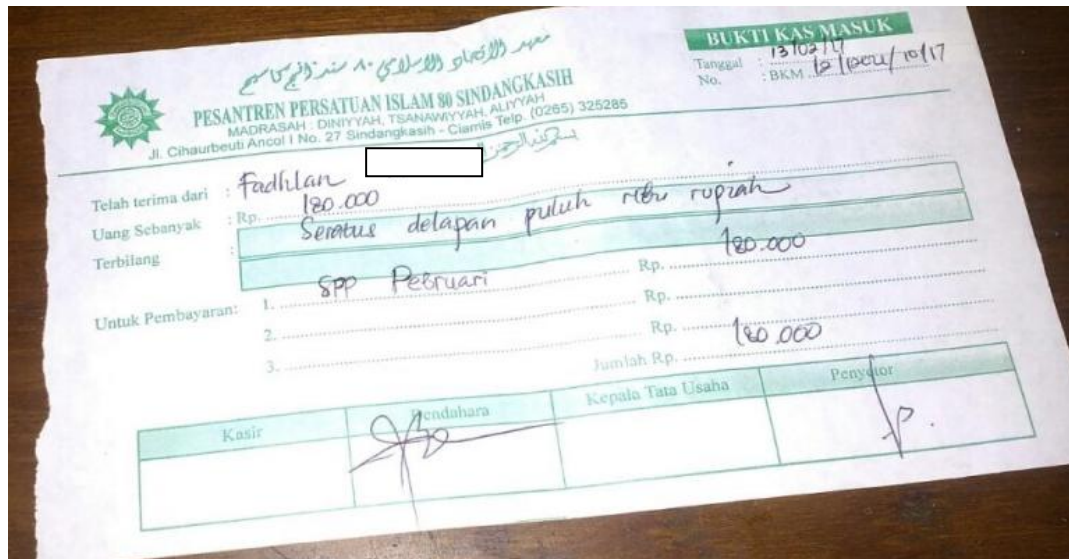 BUKTI KAS MASUK
Tanggal : 13/02/17
No. : BKM
PESANTREN PERSATUAN ISLAM 80 SINDANGKASIH
MADRASAH : DINIYYAH, TSANAWIYYAH, ALIYYAH
Jl. Cihaurbeuti Ancol I No. 27 Sindangkasih - Ciamis Telp. (0265) 325285
Telah terima dari : Fadhlan
Uang Sebanyak : Rp. 180.000
Terbilang : Seratus delapan puluh ribu rupiah
Untuk Pembayaran: 1. SPP Pebruari Rp. 180.000
2. Rp.
3. Rp.
Jumlah Rp. 180.000
Kasir Bendahara Kepala Tata Usaha Penyetor